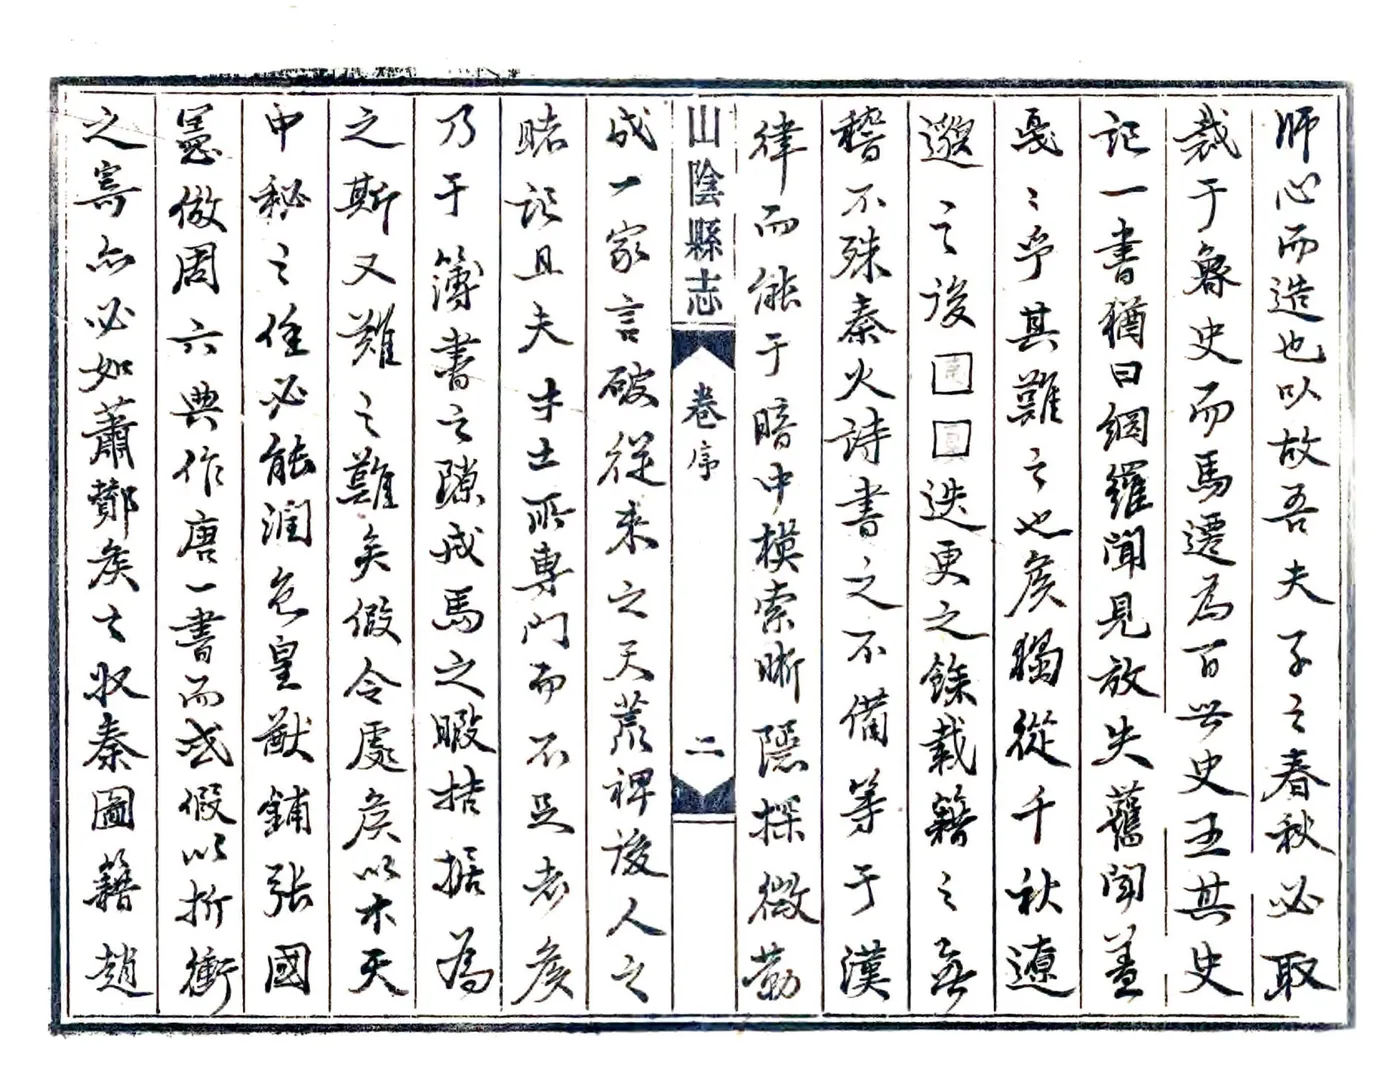 師心而造也以故吾夫子之春秋必取
裁于魯史而馬遷為百世史王其史
記一書猶曰網羅聞見放失舊聞蓋
戛〻乎其難之也侯獨從千秋遼
邈之後迭更之餘載籍之無
稽不殊秦火詩書之不備等于漢
律而能于暗中模索晰隱探微勒
山陰縣志
卷序
二
成一家言破從来之天荒裨後人之
睹記且夫士所專門而不足者侯
乃于簿書之隙戎馬之暇拮据為
之斯又難之難矣假令處侯以木天
中秘之任必能潤色皇猷鋪張國
憲倣周六典作唐一書而或假以折衝
之寄亦必如蕭酇侯之收秦圖籍趙